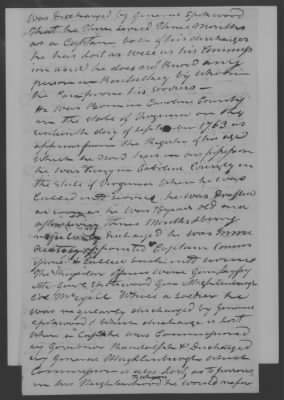 was discharged by General Spotswood
That he Then served Three Months
as a Captain but after his discharge
he has lost as well as his Commiss
ion and he does not know any
person in Kentuckey by whom
he can prove his services —
He was Born in Caroline County
in the state of Virginia on the
day of September 1763 as
appears from the Register of his age
which he now has in his possession
he was living in Caroline County in
the State of Virginia when he was
Called into service he was Drafted
as soon as he was years old and
after serving Three Months &
regularly discharged he was
appointed Captain Comm
and Called back into service
The Regular officers were Genl Layfay
ette Genl Spotswood Genl Muhlenburgh
Col While a soldier he
was regularly discharged by General
Spotswood & Which discharge is lost
When a Captain he was Commissioned
by Governor Randolph & discharged
by General Muhlenburgh which
Commission is also lost, as to persons
in his Neighbourhood he would refer